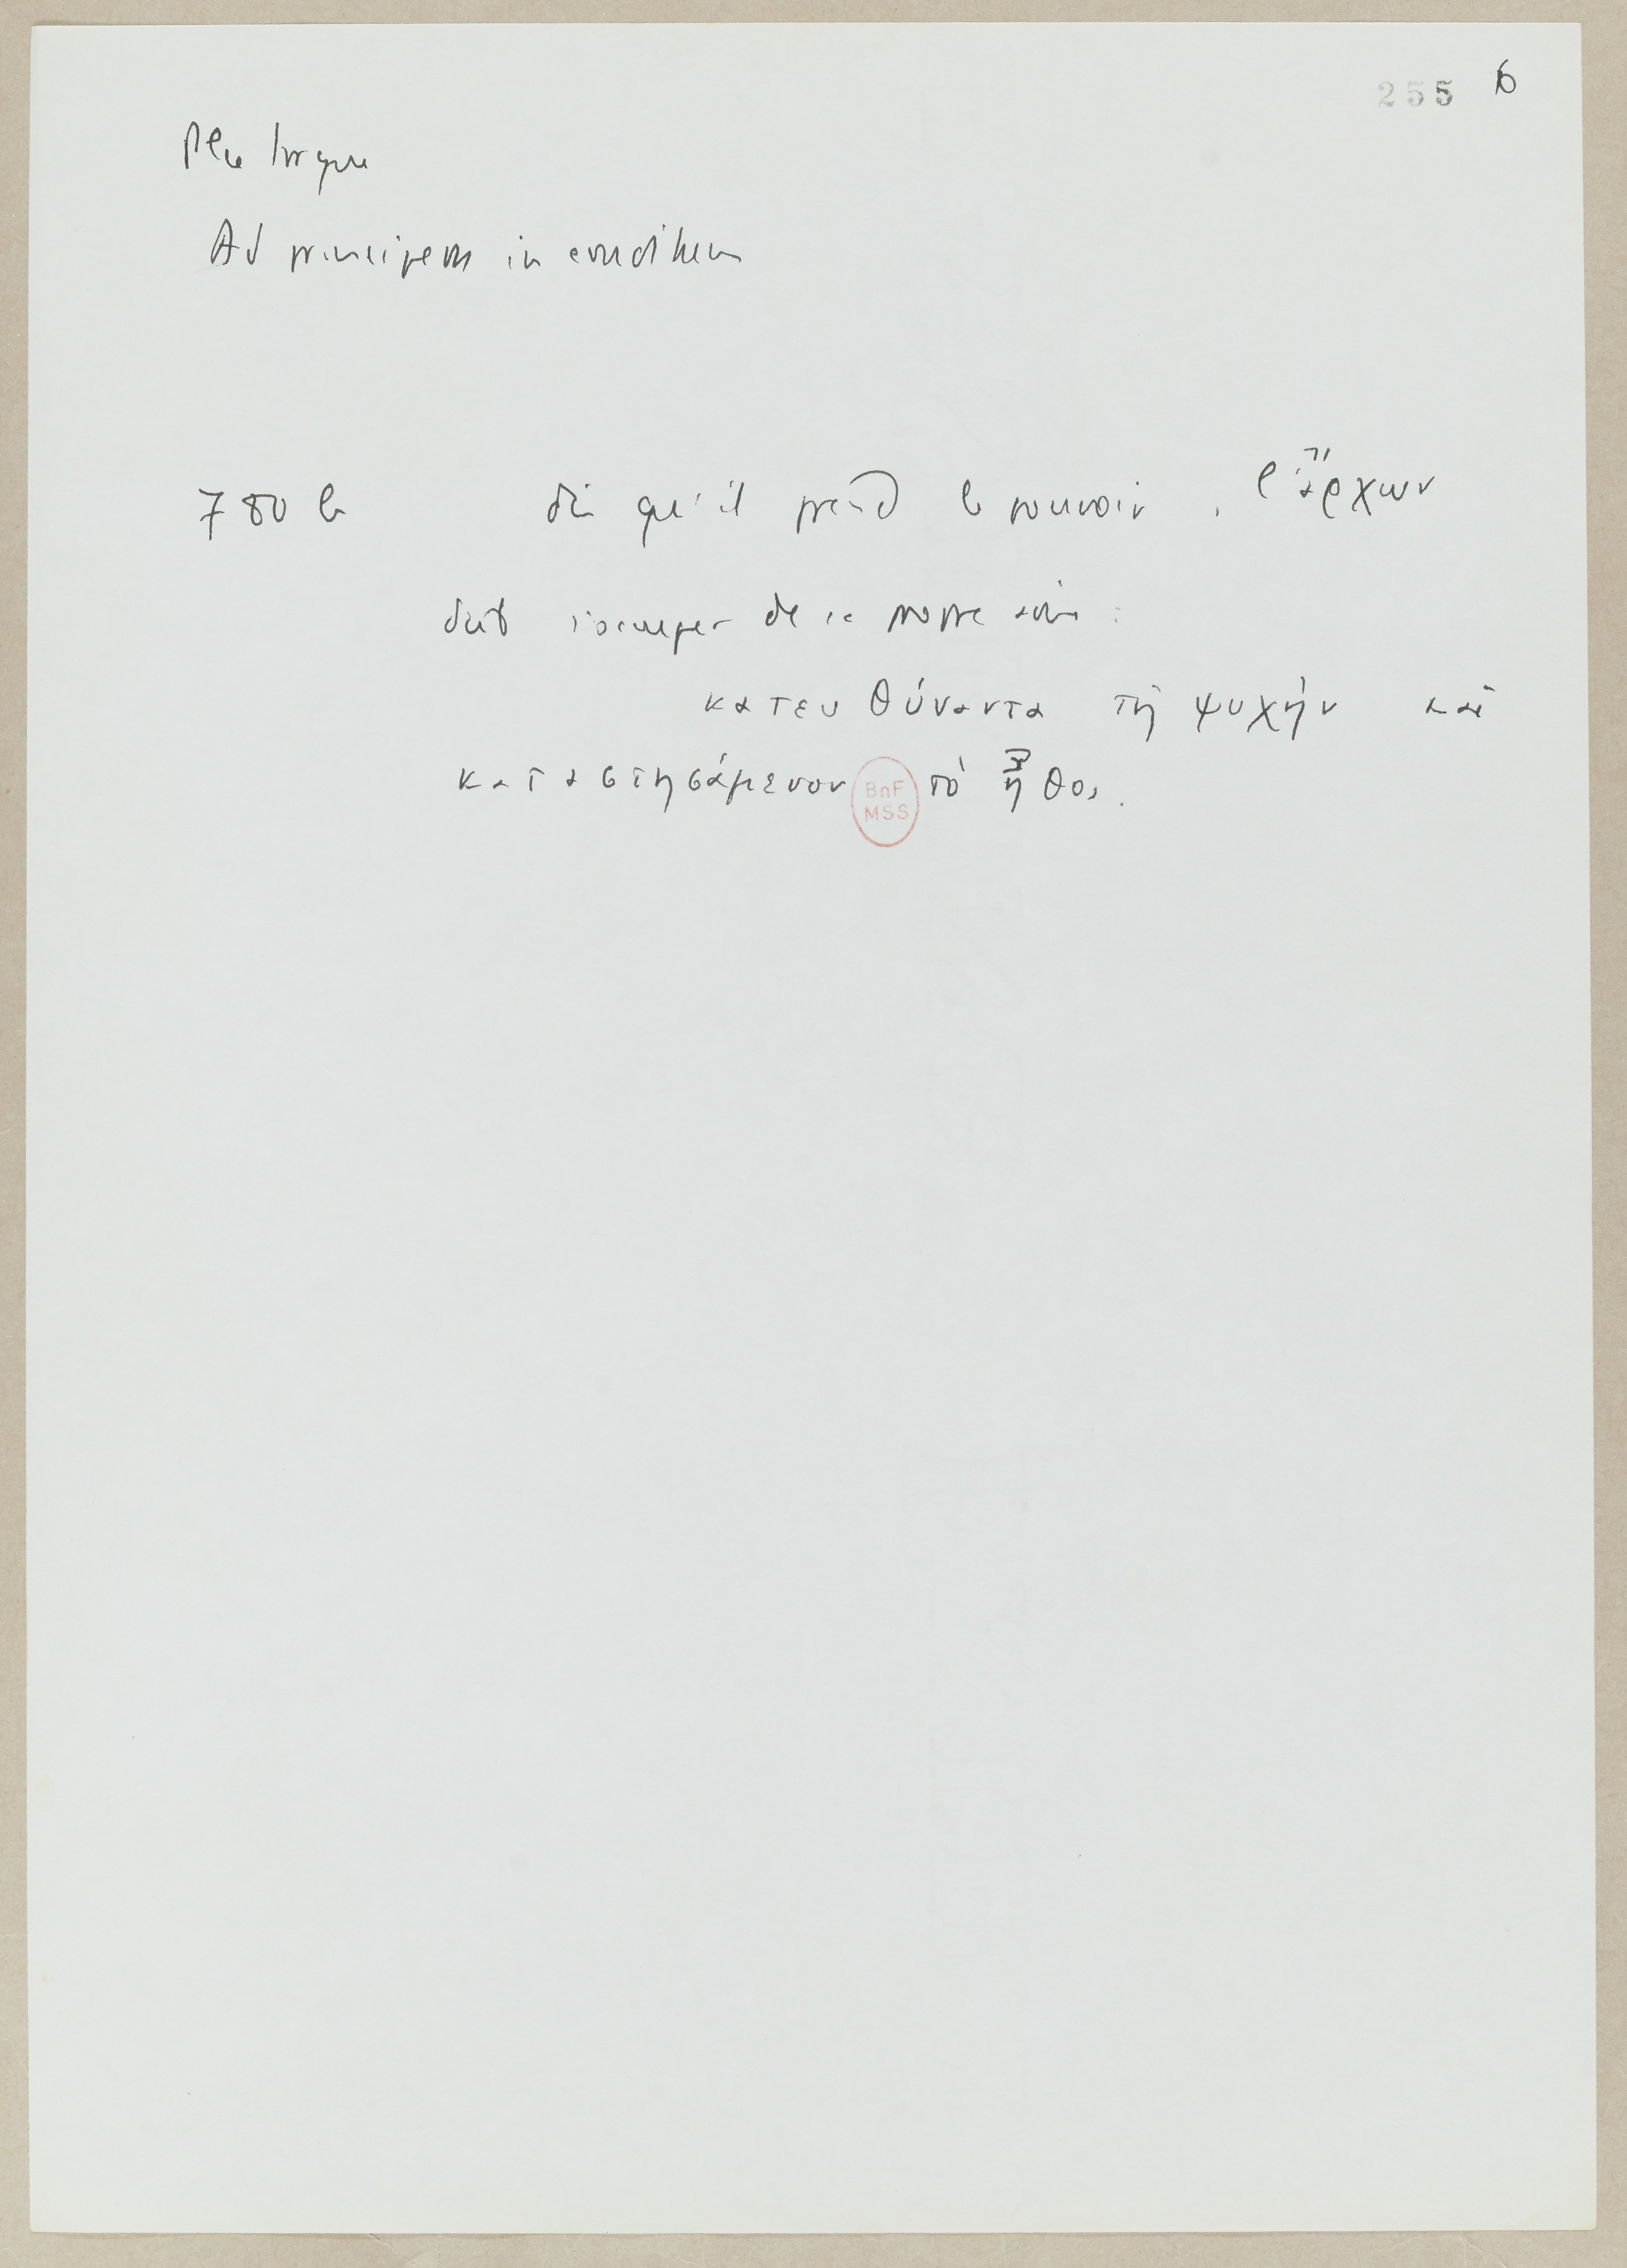 255 6
Plutarque
Ad principem in eruditum
780 b dès qu'il prend le pouvoir, l'ἄρχων
doit s'occuper de sa propre âme :
κατευθύναντα τὴ ψυχήν καὶ
καταστησάμενον τὸ ἦθος.
BnF
MSS